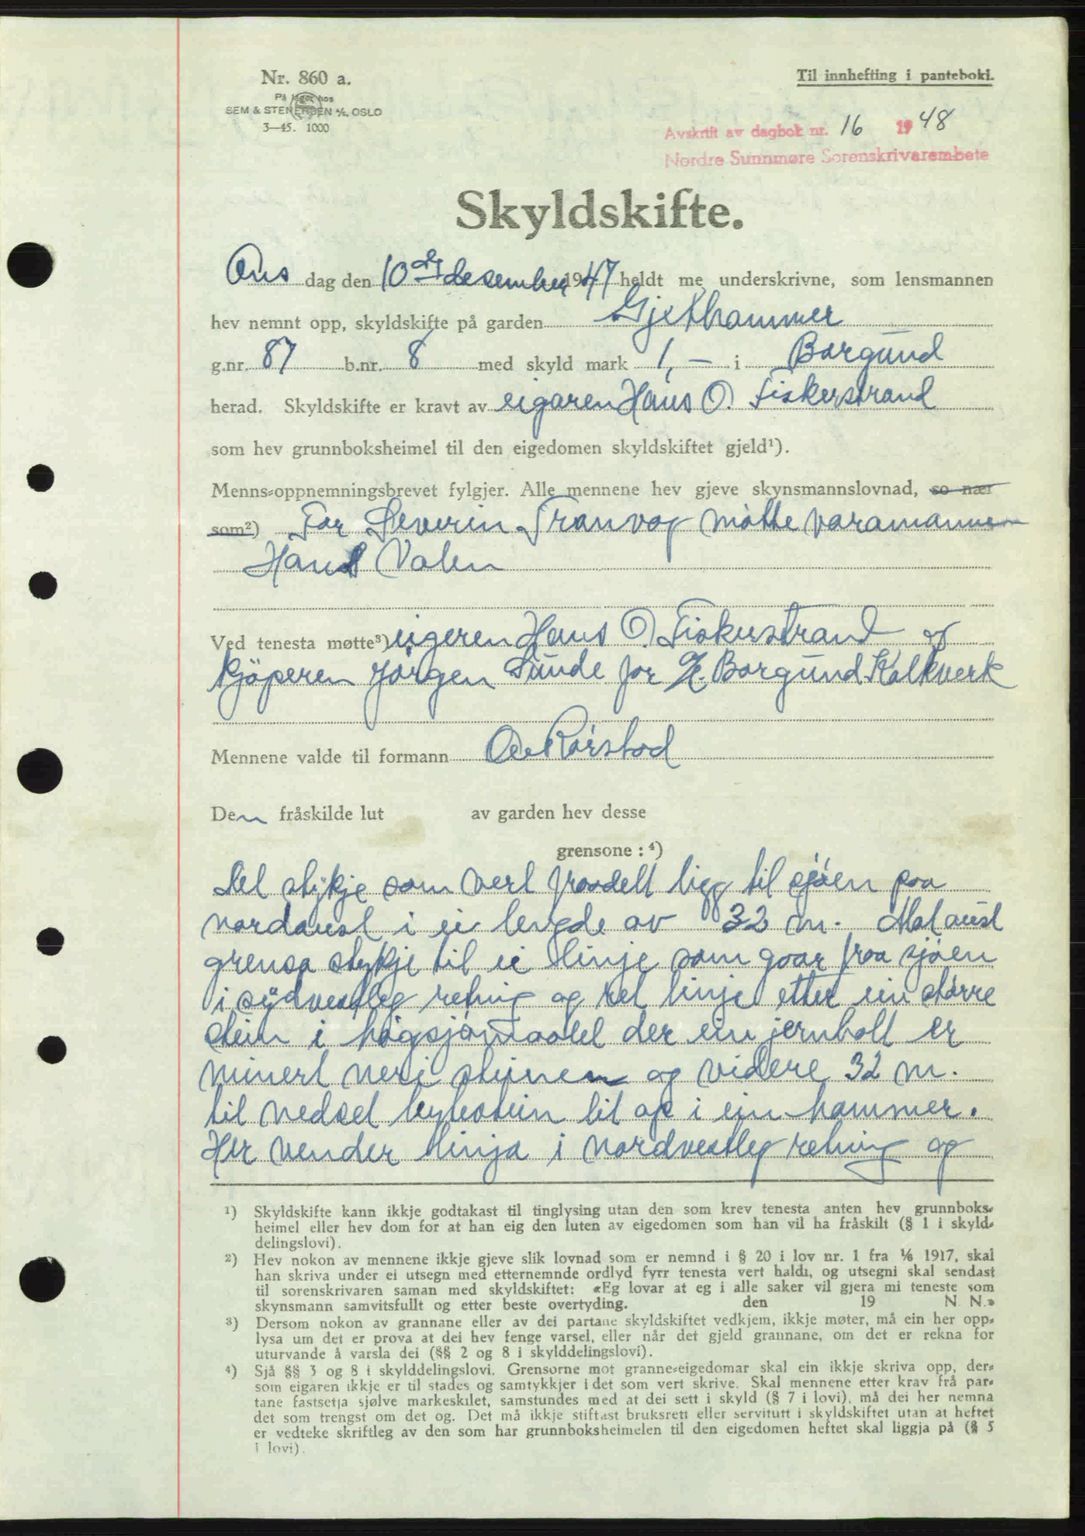 Nr. 860 a.
På lager hos
SEM & STENERSEN A/S, OSLO
3—45. 1000
Til innhefting i pantebok.
Avskrift av dagbok nr. 16 1948
Nordre Sunnmøre Sorenskrivarembete
Skyldskifte.
Ons dag den 10de desember 1947 heldt me underskrivne, som lensmannen
hev nemnt opp, skyldskifte på garden Gjethammer
g.nr. 87 b.nr. 8 med skyld mark 1,— i Borgund
herad. Skyldskifte er kravt av eigaren Hans O. Fiskerstrand
som hev grunnboksheimel til den eigedomen skyldskiftet gjeld¹).
Menns-oppnemningsbrevet fylgjer. Alle mennene hev gjeve skynsmannslovnad, so nær
som²) For Severin Tranvag møtte varamannen
Hans Valen
Ved tenesta møtte³) eigeren Hans O. Fiskerstrand og
kjøperen Jørgen Sunde for A/S Borgund Kalkverk
Mennene valde til formann Ole Rørstad
Den fråskilde lut av garden hev desse
grensone : ⁴)
Det stykje som vert fraadelt ligg til sjøen paa
nordaust i ei lengde av 33 m. Mot aust
grensa stykje til ei linje som goar fraa sjøen
i sydvestleg retning og ret linje etter ein større
stein i høgsjømaalet der ein jernbolt er
minert ned i steinen og videre 32 m.
til nedset bytestein lit op i ein hammer.
Her vender linja i nordvestleg retning og
¹) Skyldskifte kann ikkje godtakast til tinglysing utan den som krev tenesta anten hev grunnboks-
heimel eller hev dom for at han eig den luten av eigedomen som han vil ha fråskilt (§ 1 i skyld-
delingslovi).
²) Hev nokon av mennene ikkje gjeve slik lovnad som er nemnd i § 20 i lov nr. 1 fra ⅙ 1917, skal
han skriva under ei utsegn med etternemnde ordlyd fyrr tenesta vert haldi, og utsegni skal sendast
til sorenskrivaren saman med skyldskiftet: «Eg lovar at eg i alle saker vil gjera mi teneste som
skynsmann samvitsfullt og etter beste overtyding. den 19 N. N.»
³) Dersom nokon av grannane eller av dei partane skyldskiftet vedkjem, ikkje møter, må ein her opp-
lysa um det er prova at dei hev fenge varsel, eller når det gjeld grannane, om det er rekna for
uturvande å varsla dei (§§ 2 og 8 i skylddelingslovi).
⁴) Sjå §§ 3 og 8 i skylddelingslovi. Grensorne mot granne-eigedomar skal ein ikkje skriva opp, der-
som eigaren ikkje er til stades og samtykkjer i det som vert skrive. Skal mennene etter krav frå par-
tane fastsetja sjølve markeskilet, samstundes med at dei sett i skyld (§ 7 i lovi), må dei her nemna
det som trengst om det og. Det må ikkje stiftast bruksrett eller servitutt i skyldskiftet utan at heftet
er vedteke skriftleg av den som har grunnboksheimelen til den eigedomen heftet skal liggja på (§ 5
i lovi).